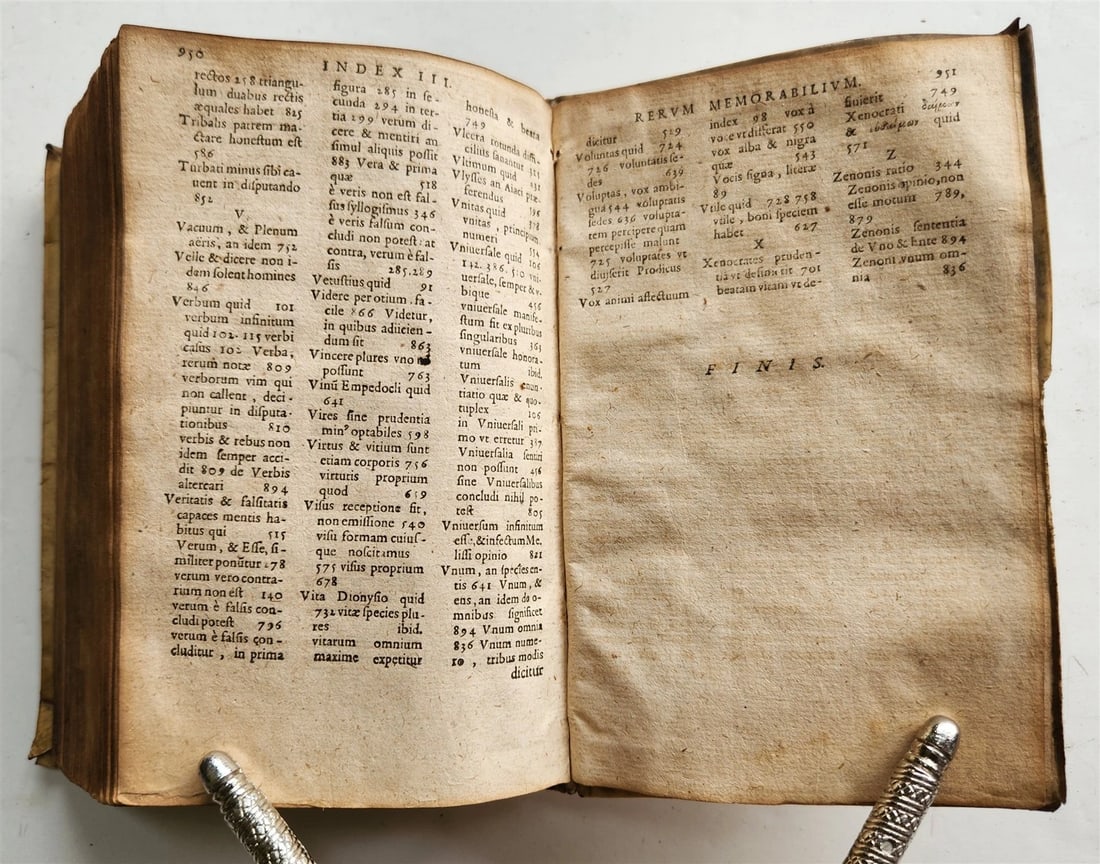 950
INDEX III.
rectos 258 triangu-
lum duabus rectis
æquales habet 825
Tribalis patrem ma-
ctare honestum est
586
Turbati minus sibi ca-
uent in disputando
852
V.
Vacuum, & Plenum
aëris, an idem 752
Velle & dicere non i-
dem solent homines
846
Verbum quid 101
verbum infinitum
quid 102. 115 verbi
casus 102 Verba,
rerum notæ 809
verborum vim qui
non callent, deci-
piuntur in disputa-
tionibus 810
verbis & rebus non
idem semper acci-
dit 809 de Verbis
altercari 894
Veritatis & falsitatis
capaces mentis ha-
bitus qui 515
Verum, & Esse, si-
militer ponūtur 278
verum vero contra-
rium non est 140
verum è falsis con-
cludi potest 796
verum è falsis con-
cluditur, in prima
figura 285 in se-
cunda 294 in ter-
tia 299 verum di-
cere & mentiri an
simul aliquis possit
883 Vera & prima
quæ 518
è veris non est fal-
sus syllogismus 346
è veris falsum con-
cludi non potest: at
contra, verum è fal-
sis 285.289
Vetustius quid 91
Videre per otium fa-
cile 866 Videtur,
in quibus adiicien-
dum sit 863
Vincere plures vno
possunt 763
Vinū Empedocli quid
641
Vires sine prudentia
min⁹ optabiles 598
Virtus & vitium sunt
etiam corporis 756
virtutis proprium
quod 659
Visus receptione fit,
non emissione 540
visu formam cuius-
que noscitamus
575 visus proprium
678
Vita Dionysio quid
732 vitæ species plu-
res ibid.
vitarum omnium
maxime expetitur
honesta & beata
749
Vlcera rotunda diffi-
cilius sanantur
Vltimum quid
Vlysses an Aiaci præ-
ferendus
Vnitas quid
vnitas, principium
numeri
Vniuersale quid 106
142. 386. 510 vni-
uersale, semper & v-
bique 456
vniuersale manife-
stum fit ex pluribus
singularibus 363
vniuersale honora-
tum ibid.
Vniuersalis enun-
tiatio quæ & quo-
tuplex 105
in Vniuersali pri-
mo vt erretur 387
Vniuersalia sentiri
non possunt 456
sine Vniuersalibus
concludi nihil po-
test 805
Vniuersum infinitum
esse, & infectum Me.
lissi opinio 821
Vnum, an species en-
tis 641 Vnum, &
ens, an idem de o-
mnibus significet
894 Vnum omnia
836 Vnum nume-
ro, tribus modis
dicitur
RERVM MEMORABILIVM.
951
dicitur 529
Voluntas quid 724
726 voluntatis se-
des 639
Voluptas, vox ambi-
gua 544 voluptatis
sedes 636 volupta-
tem percipere quam
percepisse malunt
725 voluptates vt
diuiserit Prodicus
527
Vox animi affectuum
index 98 vox à
voce vt differat 550
vox alba & nigra
quæ 543
Vocis signa, literæ
89
Vtile quid 728 758
vtile, boni speciem
habet 627
X
Xenocrates pruden-
tiā vt definiuit 701
beatam vitam vt de-
finierit 749
Xenocrati
& quid
571
Z
Zenonis ratio 344
Zenonis opinio, non
esse motum 789,
879
Zenonis sententia
de Vno & Ente 894
Zenoni vnum om-
nia 836
FINIS.